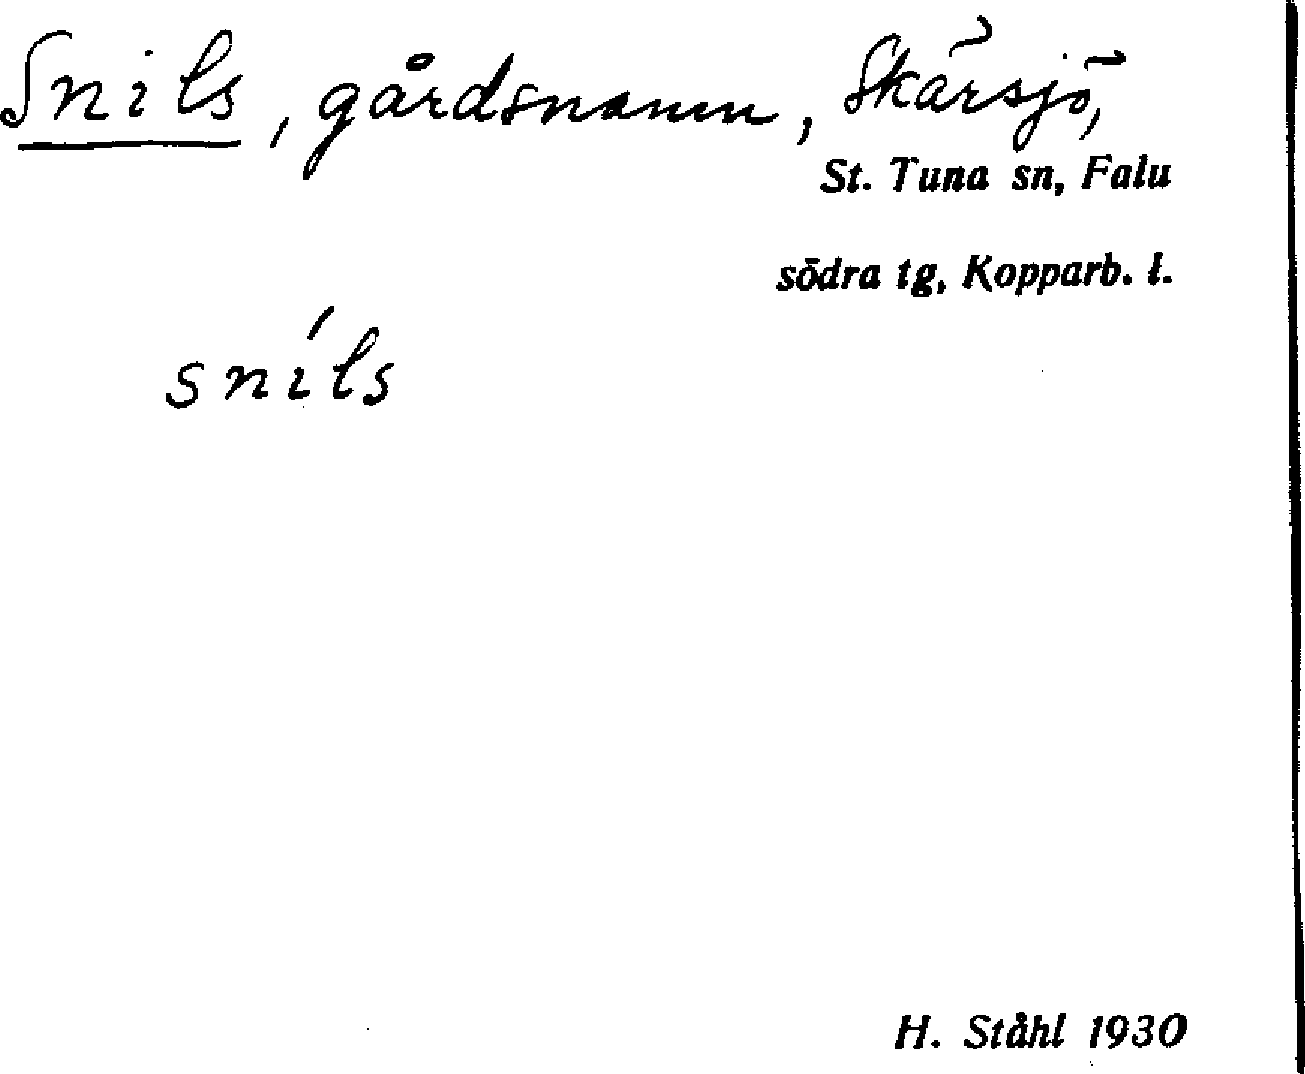 Snils, gårdsnamn, Skärsjö,
St. Tuna sn, Falu
södra tg, Kopparb. l.
sníls
H. Ståhl 1930